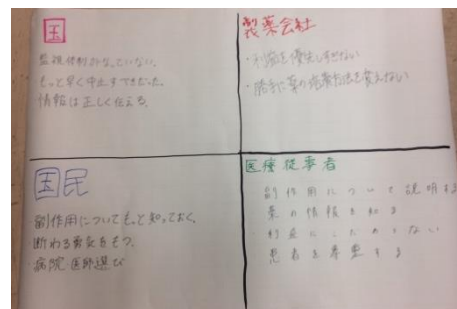 国
監視体制がなっていない。
もっと早く中止すべきだった。
情報は正しく伝える。
製薬会社
・利益を優先しすぎない
・勝手に薬の培養方法を変えない
国民
副作用についてもっと知っておく。
断わる勇気をもつ。
病院・医師選び
医療従事者
副作用について説明する
薬の情報を知る
利益に
患者を尊重する